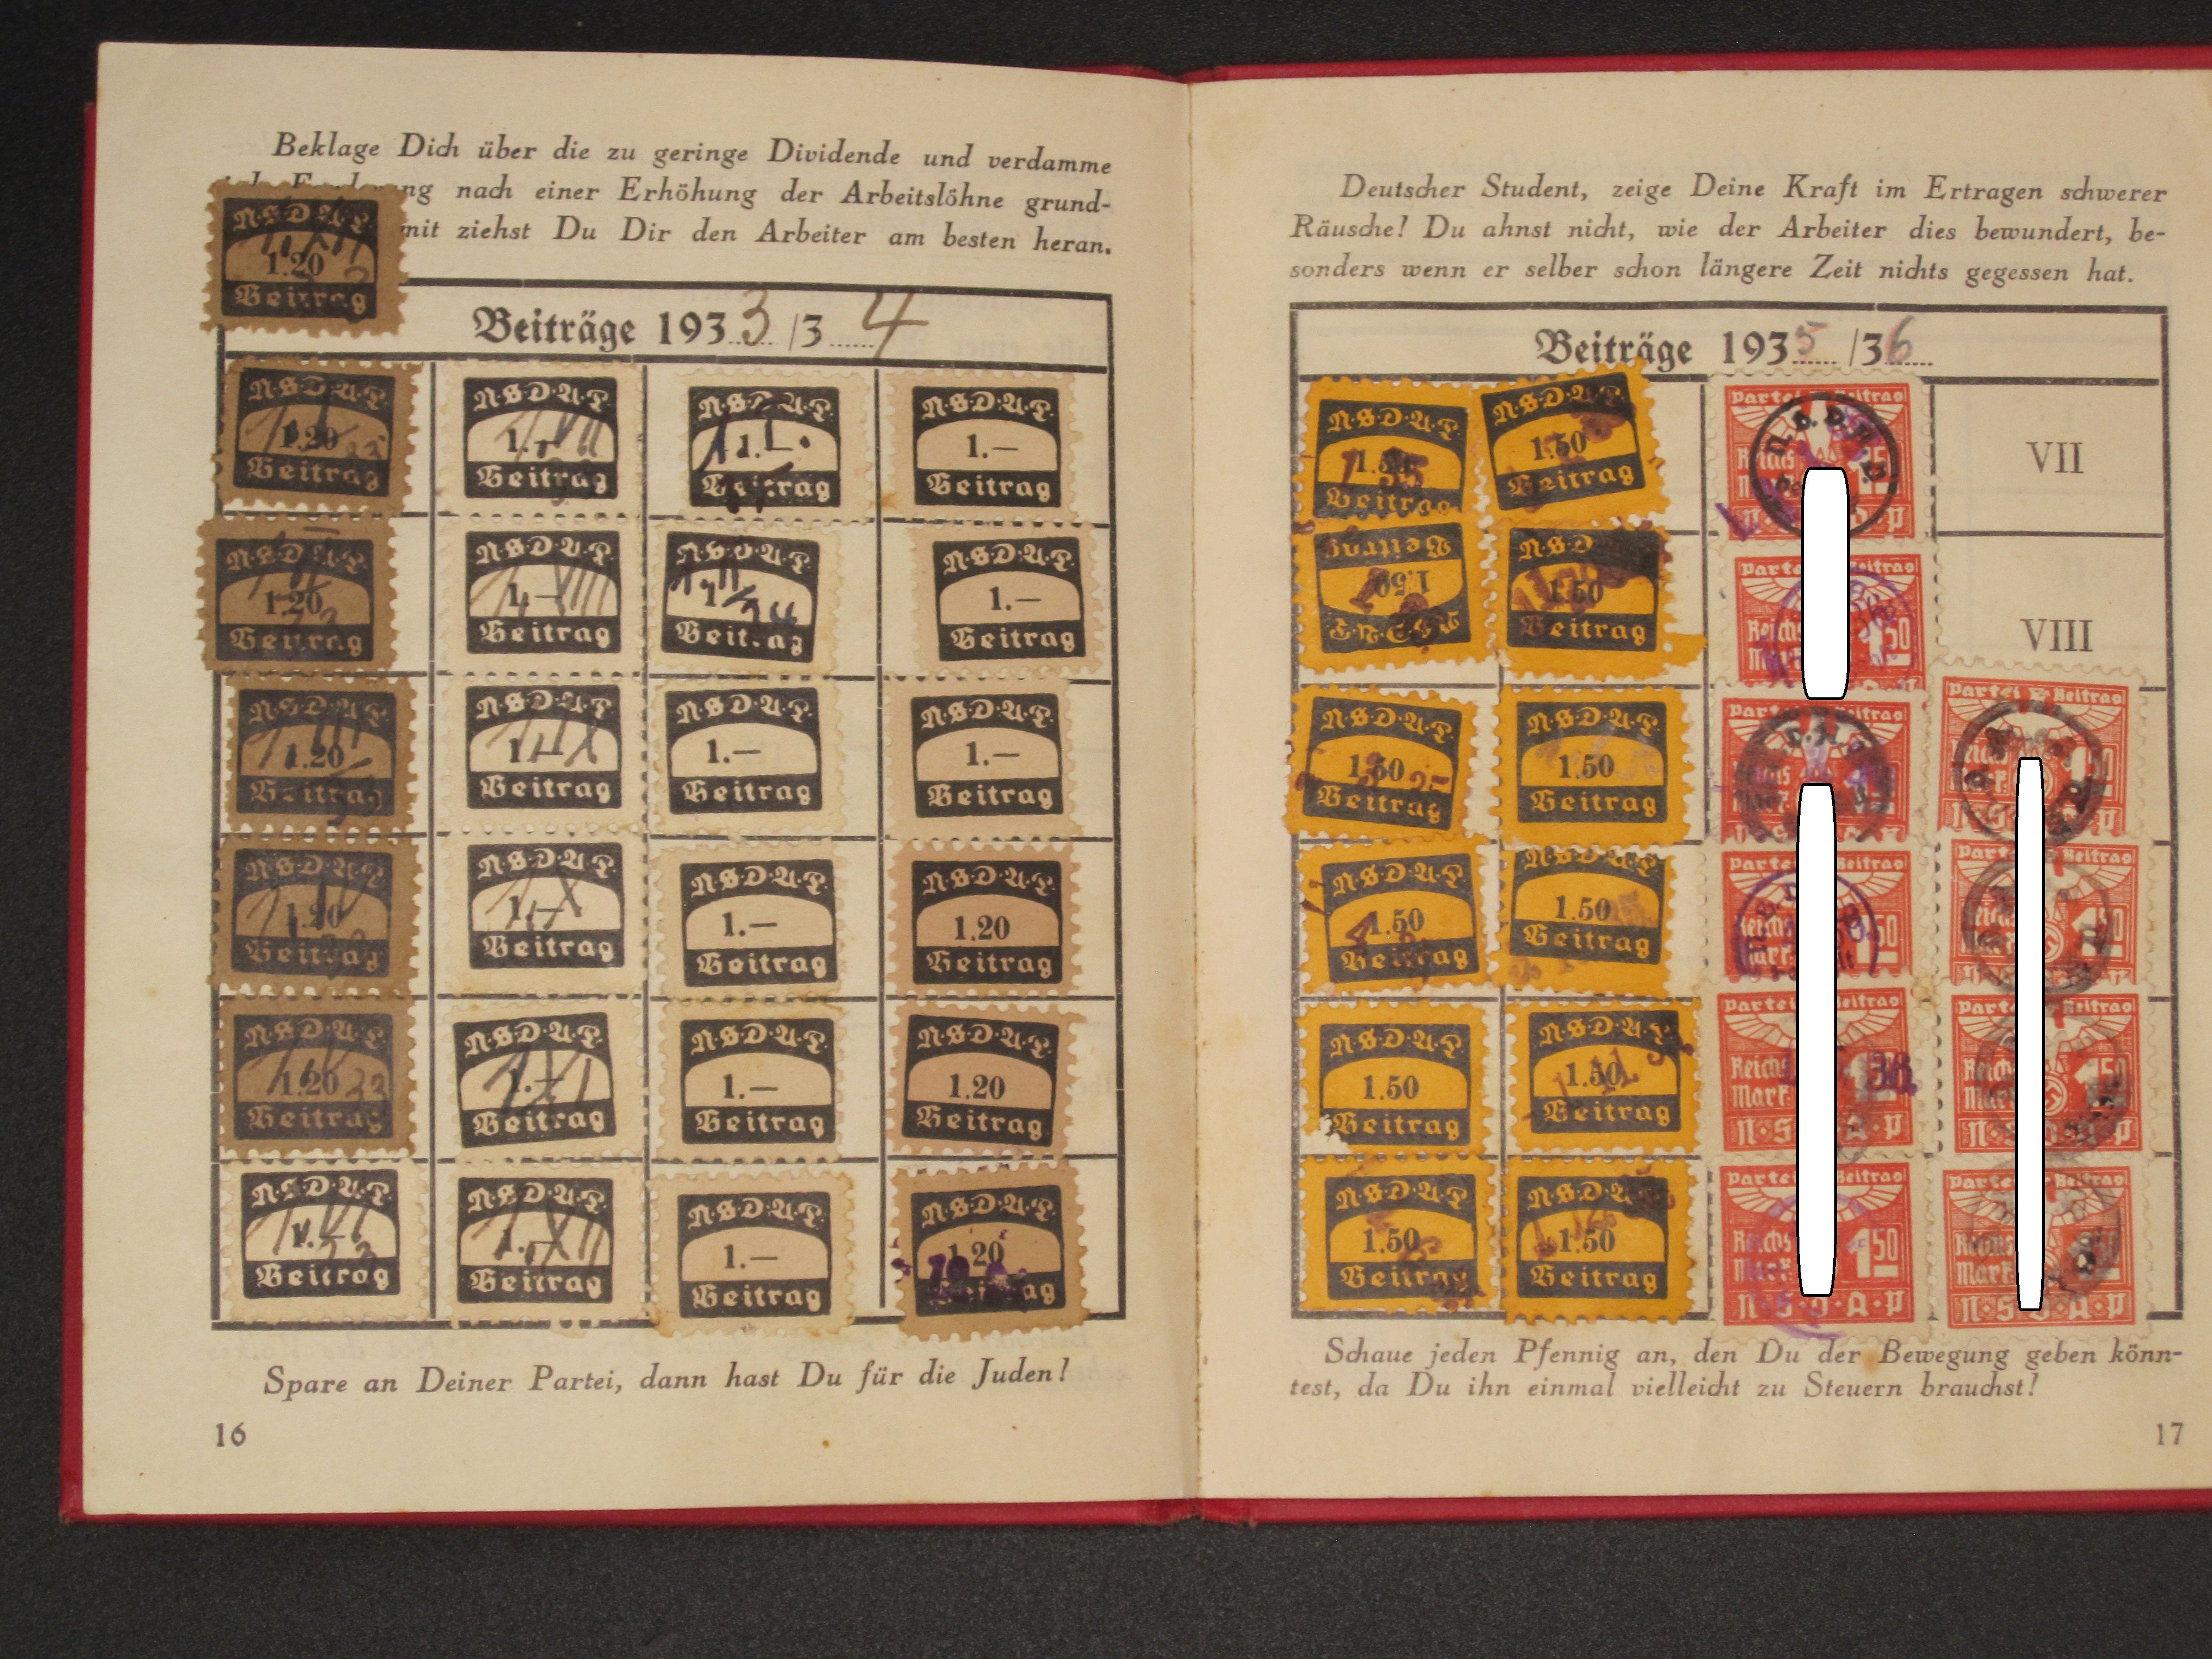 Beklage Dich über die zu geringe Dividende und verdamme
nach einer Erhöhung der Arbeitslöhne grund-
ziehst Du Dir den Arbeiter am besten heran.
N·S·D·A·P.
1.20
Beitrag
Beiträge 1933/34
N·S·D·A·P. N·S·D·A·P. N·S·D·A·P. N·S·D·A·P.
1.20 1.— 1.— 1.—
Beitrag Beitrag Beitrag Beitrag
N·S·D·A·P. N·S·D·A·P. N·S·D·A·P. N·S·D·A·P.
1.20 1.— 1.—
Beitrag Beitrag Beitrag Beitrag
N·S·D·A·P. N·S·D·A·P. N·S·D·A·P. N·S·D·A·P.
1.20 1.— 1.— 1.—
Beitrag Beitrag Beitrag Beitrag
N·S·D·A·P. N·S·D·A·P. N·S·D·A·P. N·S·D·A·P.
1.20 1.— 1.— 1.20
Beitrag Beitrag Beitrag Beitrag
N·S·D·A·P. N·S·D·A·P. N·S·D·A·P. N·S·D·A·P.
1.20 1.— 1.— 1.20
Beitrag Beitrag Beitrag Beitrag
N·S·D·A·P. N·S·D·A·P. N·S·D·A·P. N·S·D·A·P.
1.— 1.— 1.— 1.20
Beitrag Beitrag Beitrag Beitrag
Spare an Deiner Partei, dann hast Du für die Juden!
16
Deutscher Student, zeige Deine Kraft im Ertragen schwerer
Räusche! Du ahnst nicht, wie der Arbeiter dies bewundert, be-
sonders wenn er selber schon längere Zeit nichts gegessen hat.
Beiträge 1935/36
N·S·D·A·P. N·S·D·A·P. Partei Beitrag
1.50 VII
Beitrag Beitrag
Beitrag N·S·D Partei Beitrag
1.50 1.50 Reichs 50 VIII
N·S·D·A·P. Beitrag
N·S·D·A·P. N·S·D·A·P. Partei Beitrag Partei Beitrag
1.50 1.50
Beitrag Beitrag
N·S·D·A·P. N·S·D·A·P. Partei Beitrag Partei Beitrag
1.50 1.50 Reichs 50 1.50
Beitrag Beitrag Mark
N·S·D·A·P. N·S·D·A·P. Partei Beitrag Partei Beitrag
1.50 1.50 Reichs Mark 36. 1.50
Beitrag Beitrag N·S·D·A·P N·S·D·A·P
N·S·D·A·P. N·S·D·A·P. Partei Beitrag Partei Beitrag
1.50 1.50 Reichs Mark 1.50 Reichs Mark
Beitrag Beitrag N·S·D·A·P N·S·D·A·P
Schaue jeden Pfennig an, den Du der Bewegung geben könn-
test, da Du ihn einmal vielleicht zu Steuern brauchst!
17